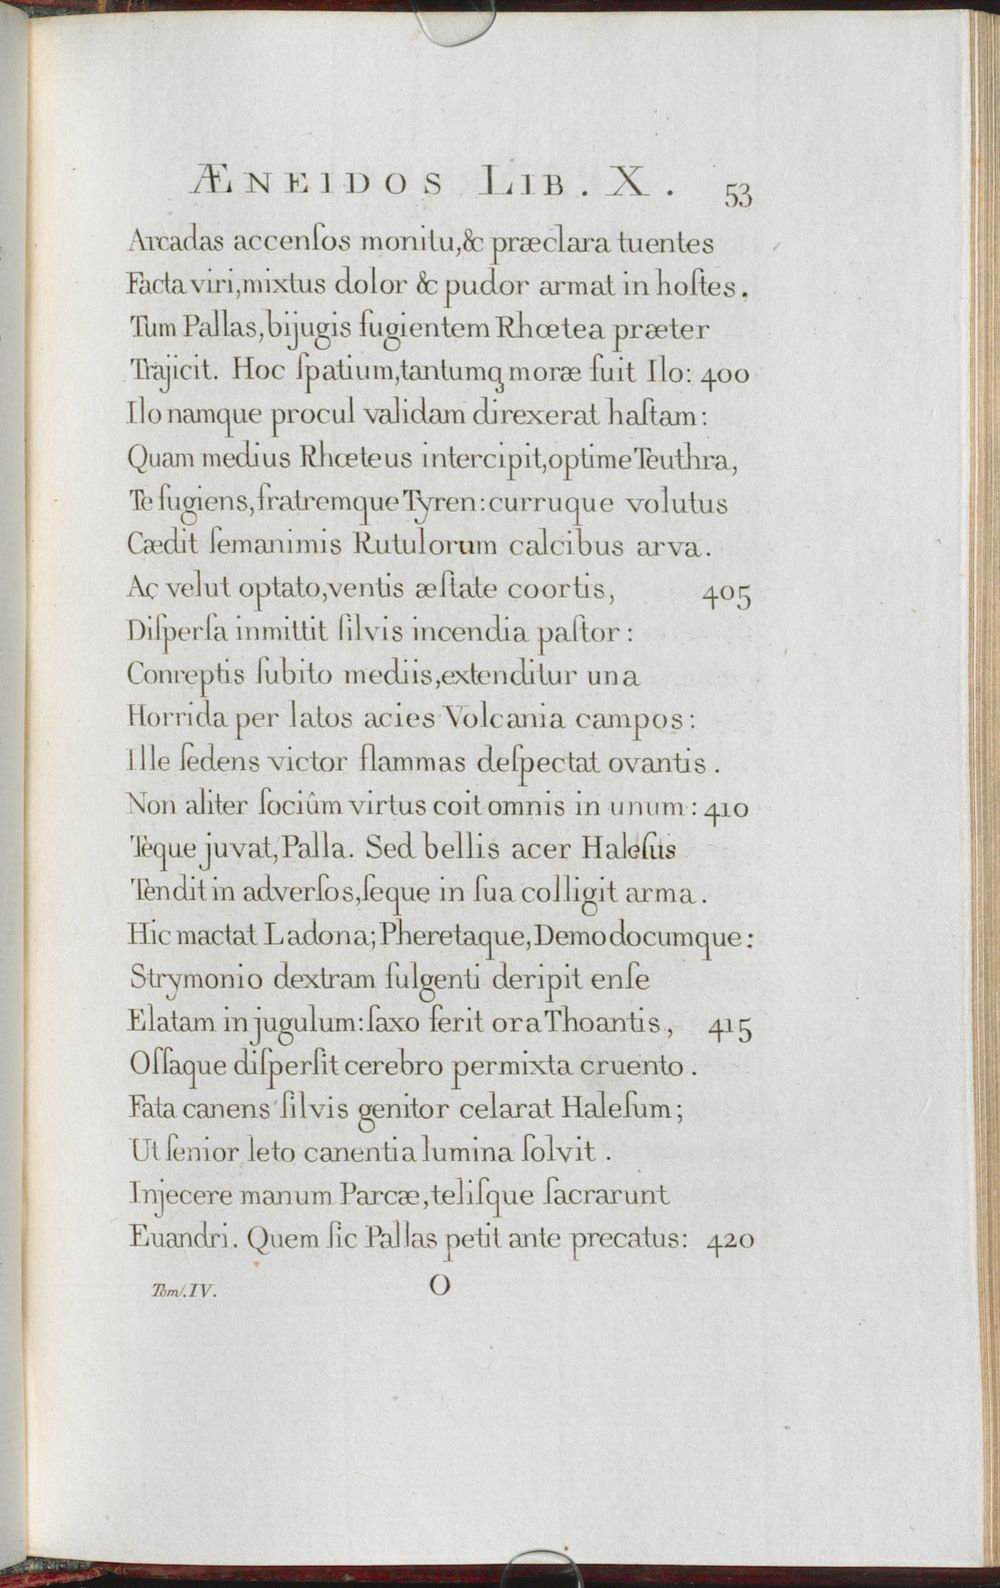 ÆNEIDOS LIB. X. 53
Arcadas accenſos monitu, & præclara tuentes
Facta viri, mixtus dolor & pudor armat in hoſtes.
Tum Pallas, bijugis fugientem Rhœtea præter
Trajicit. Hoc ſpatium, tantumqꝫ moræ fuit Ilo: 400
Ilo namque procul validam direxerat haſtam:
Quam medius Rhœteus intercipit, optime Teuthra,
Te fugiens, fratremque Tyren: curruque volutus
Cædit ſemanimis Rutulorum calcibus arva.
Aç velut optato, ventis æſtate coortis, 405
Diſperſa inmittit ſilvis incendia paſtor:
Conreptis ſubito mediis, extenditur una
Horrida per latos acies Volcania campos:
Ille ſedens victor flammas deſpectat ovantis.
Non aliter ſociûm virtus coit omnis in unum: 410
Teque juvat, Palla. Sed bellis acer Haleſus
Tendit in adverſos, ſeque in ſua colligit arma.
Hic mactat Ladona; Pheretaque, Demodocumque:
Strymonio dextram fulgenti deripit enſe
Elatam in jugulum: ſaxo ferit ora Thoantis, 415
Oſſaque diſperſit cerebro permixta cruento.
Fata canens ſilvis genitor celarat Haleſum;
Ut ſenior leto canentia lumina ſolvit.
Injecere manum Parcæ, teliſque ſacrarunt
Euandri. Quem ſic Pallas petit ante precatus: 420
Tom. IV. O